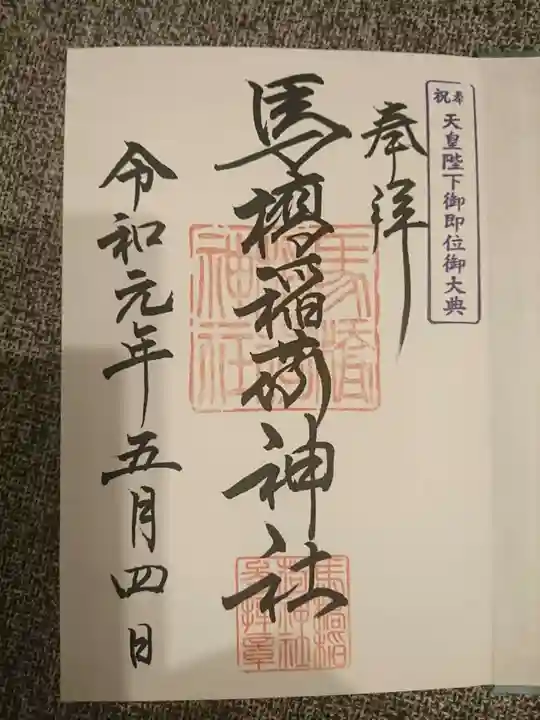 奉祝 天皇陛下御即位御大典
奉拝
馬橋稲荷神社
令和元年五月四日
馬橋稲荷神社
馬橋稲荷神社参拝章